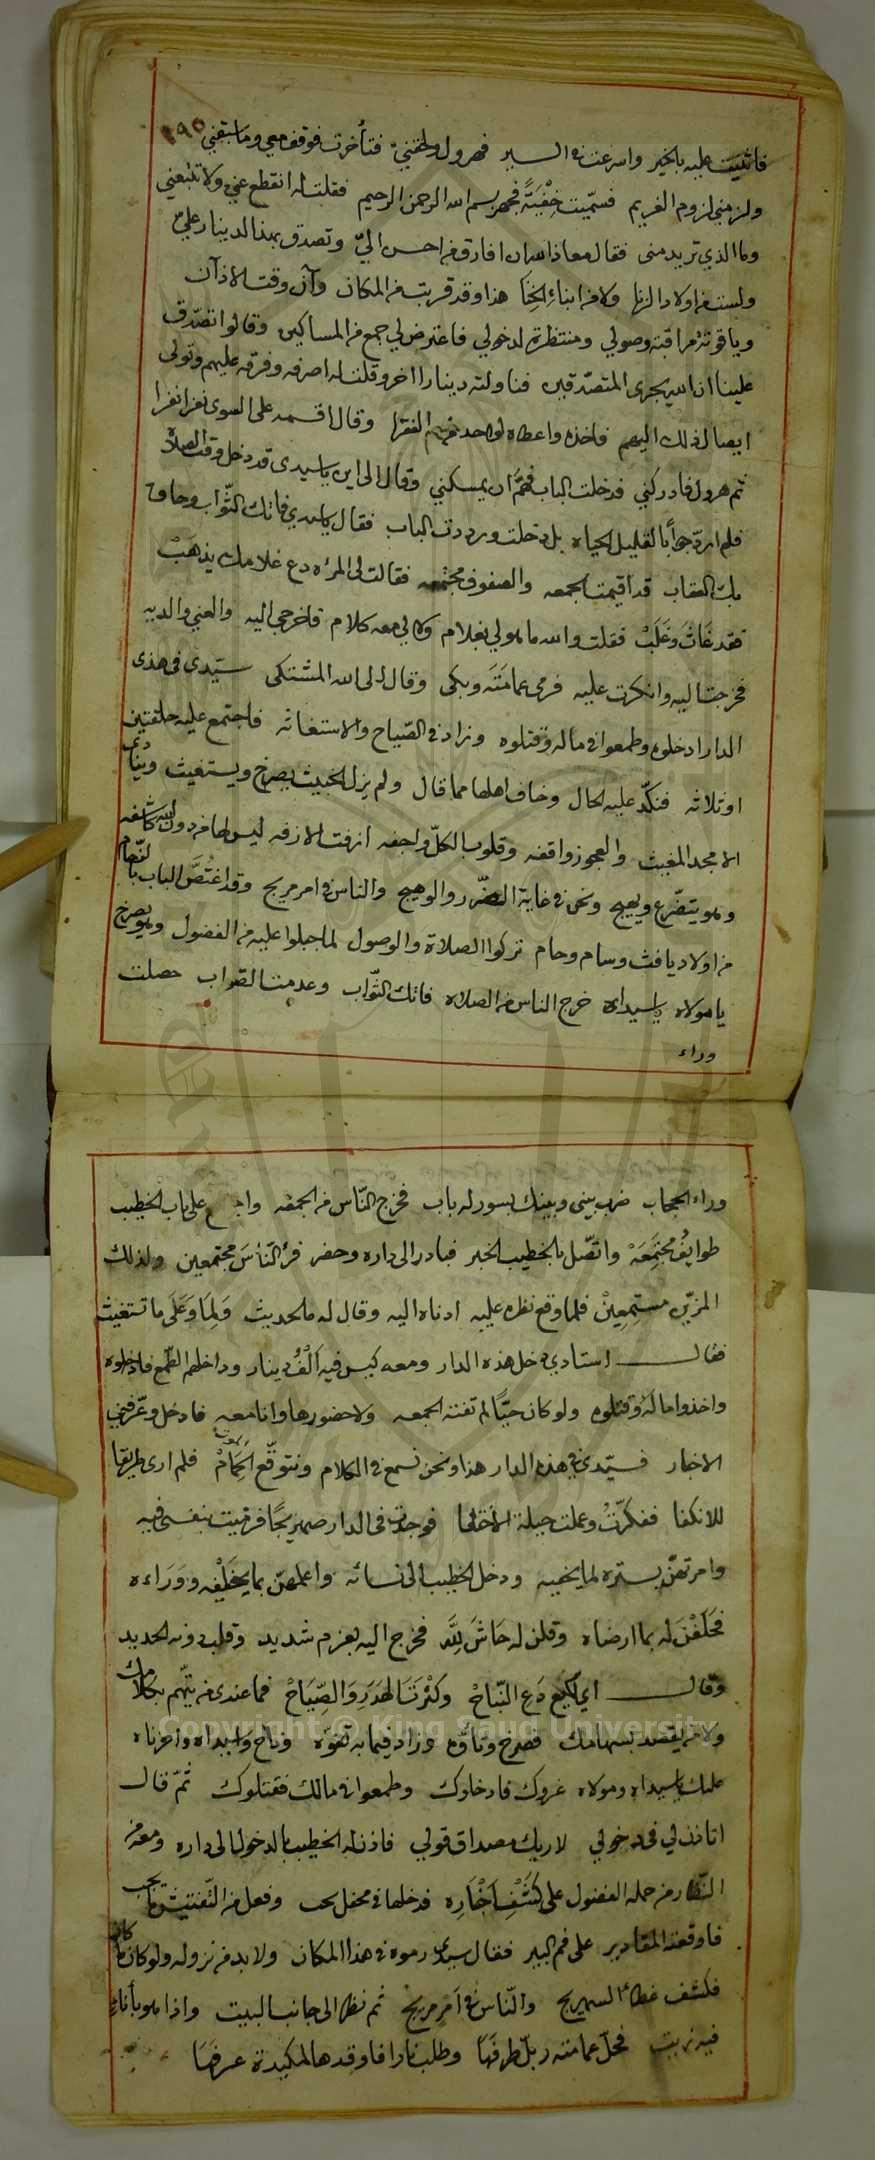 ١٩٥
فاثنيت عليه بالخير واسرعت في السير فهرول ولحقني فتأخرت فوقف معي وما سبقني
ولزمني لزوم الغريم فسمّيت خِفْيَتًہ فجهر بسم الله الرحمن الرحيم فقلت له انقطع عني ولا تتبعني
وما الذي تريد مني فقال معاذ الله ان افارق من احسن اليّ وتصدق بهذا الدينار عليّ
ولست من اولاد الزنا ولا من ابناء الخِنَا هذا وقد قربت من المكان وآن وقت الاذان
وياقوتة مراقبة وصولي ومنتظرة لدخولي فاعترض لي جمع من المساكين وقالوا تصدّق
علينا ان الله يجزى المتصدّقين فناولته دينارا اخر وقلت له اصرفه وفرّقه عليهم وتولى
ايصال ذلك اليهم فاخذه واعطاه لواحد من الفقرا وقال اقسمه على السوى نفرا نفرا
ثم هرول فادركني فدخلت الباب فهمَّ ان يمسكني وقال الى اين يا سيدى قد دخل وقت الصلاة
فلم اردّ جوأبا لقليل الحياه بل دخلت ورددت الباب فقال يا سيدي فاتك الثّواب وحاق
بك العقاب قد اقيمت الجمعه والصفوف مجتمعه فقالت لي المرٔه دع غلامك يذهَبْ
فقد غَاثَ وغَلَبْ فقلت والله ما هو لي بغلام ولا لي معه كلام فاخرجي اليه والعني والديه
فخرجت اليه وانكرت عليه فرمى عمامَتَه وبكى وقال الى الله المشتكى سيّدى فى هذى
الدار ادخلوه وطمعوا في ماله وقتلوه وزاد في الصّياح والاستغاثه فاجتمع عليه حلقتين
او ثلاثه فنكّد عليه الحال وخاف اهلها مما قال ولم يزل الخبيث يصرخ ويستغيث وينادى
الا مجد المغيث والعجوز واقفه وقلوب الكلّ واجفه ازفت الازفه ليس لها من دون الله كاشفه
وهو يتضرّع ويهيج ونحن في غاية الضّرر والوهيج والناس في امر مريج وقد اغتُصَّ الباب بالزّحام
من اولاد يافث وسام وحام تركوا الصلاة والوصول لما جبلوا عليه من الفضول وهو يصرخ
يا مولاه يا سيداه خرج الناس من الصلاه فاتك الثّواب وعدمت الصّواب حصلت
وراء
وراء الحجاب ضرب بيني وبينك بسور له باب فخرج النّاس من الجمعه على باب الخطيب
طوايِفُ مجتَمِعَهْ واتّصل بالخطيب الخبر فبادر الى داره وحضر فرأ النّأسَ مجتمعين ولذلك
المزيّن مستمعِينْ فلما وقع نظره عليه ادناه اليه وقال له ما الحديث وَلِمَا وَعَلَى ما تستغيث
فقال استادي دخل هذه الدار ومعه كيس فيه أَلْفُ دينار وداخلهم الطّمع فادخلوه
واخذوا مالَهُ وقتلوه ولو كان حيّا لم تفته الجمعه ولا حضورها وانا معه فادخل وعرّفني
الاخبار فسيّدى في هذه الدار هذا ونحن نسمع في الكلام ونتوقّع الحِمَامْ فلم ارى طريقا
للانكفا ففكرّتُ وعملت حيلة الأختفا فوجدت فى الدار صهريجًا فرميت بنفسى فيه
وامرتهنّ بستره لما يخفيه ودخل الخطيب الى نسائه واعلمهنّ بما يخَلِّفُه وورَاءه
فَحَلَفْنَ له بما ارضاه وقلن له حَاشَ لِلَّه فخرج اليه بعزم شديد وقلب دونه الحديد
وقال اي لكيع دَعِ النُّباحْ وكَثْرَتَ الهَدَرِ وَالصِّيَاحْ فما عندى من يتّهم بكلامك
ولا من يقصد بسهامك فصرخ وتأوّه وزاد فيما به تفوّه وناح وا سيداه وا حزناه
عليك يا سيداه ومولاه غروك فادخلوك وطمعوا في مالك فقتلوك ثمّ قال
اتأذن لي فى دخولي لاريك مصداق قولي فاذن له الخطيب بالدخول الى داره ومعه من
النّظار من حمله الفضول على كَشْفِ اخْبَارِه فدخلها في محفل وفعل من التّفتيش ما يجب
فاوقفته المقادير على فم البير فقال سيدى رموه في هذا المكان ولا بد من نزوله ولو كان ما كان
فكشف غطاء السهريج والنّاس في أمرٍ مريجْ ثم نظر الى جانب البيت واذا هو بأناء
فيه زيت فحلّ عمامته وبلّ طرفَهَا وطلب نارا فاوقدها لمكيدة عرفهَا
Copyright © King Saud University